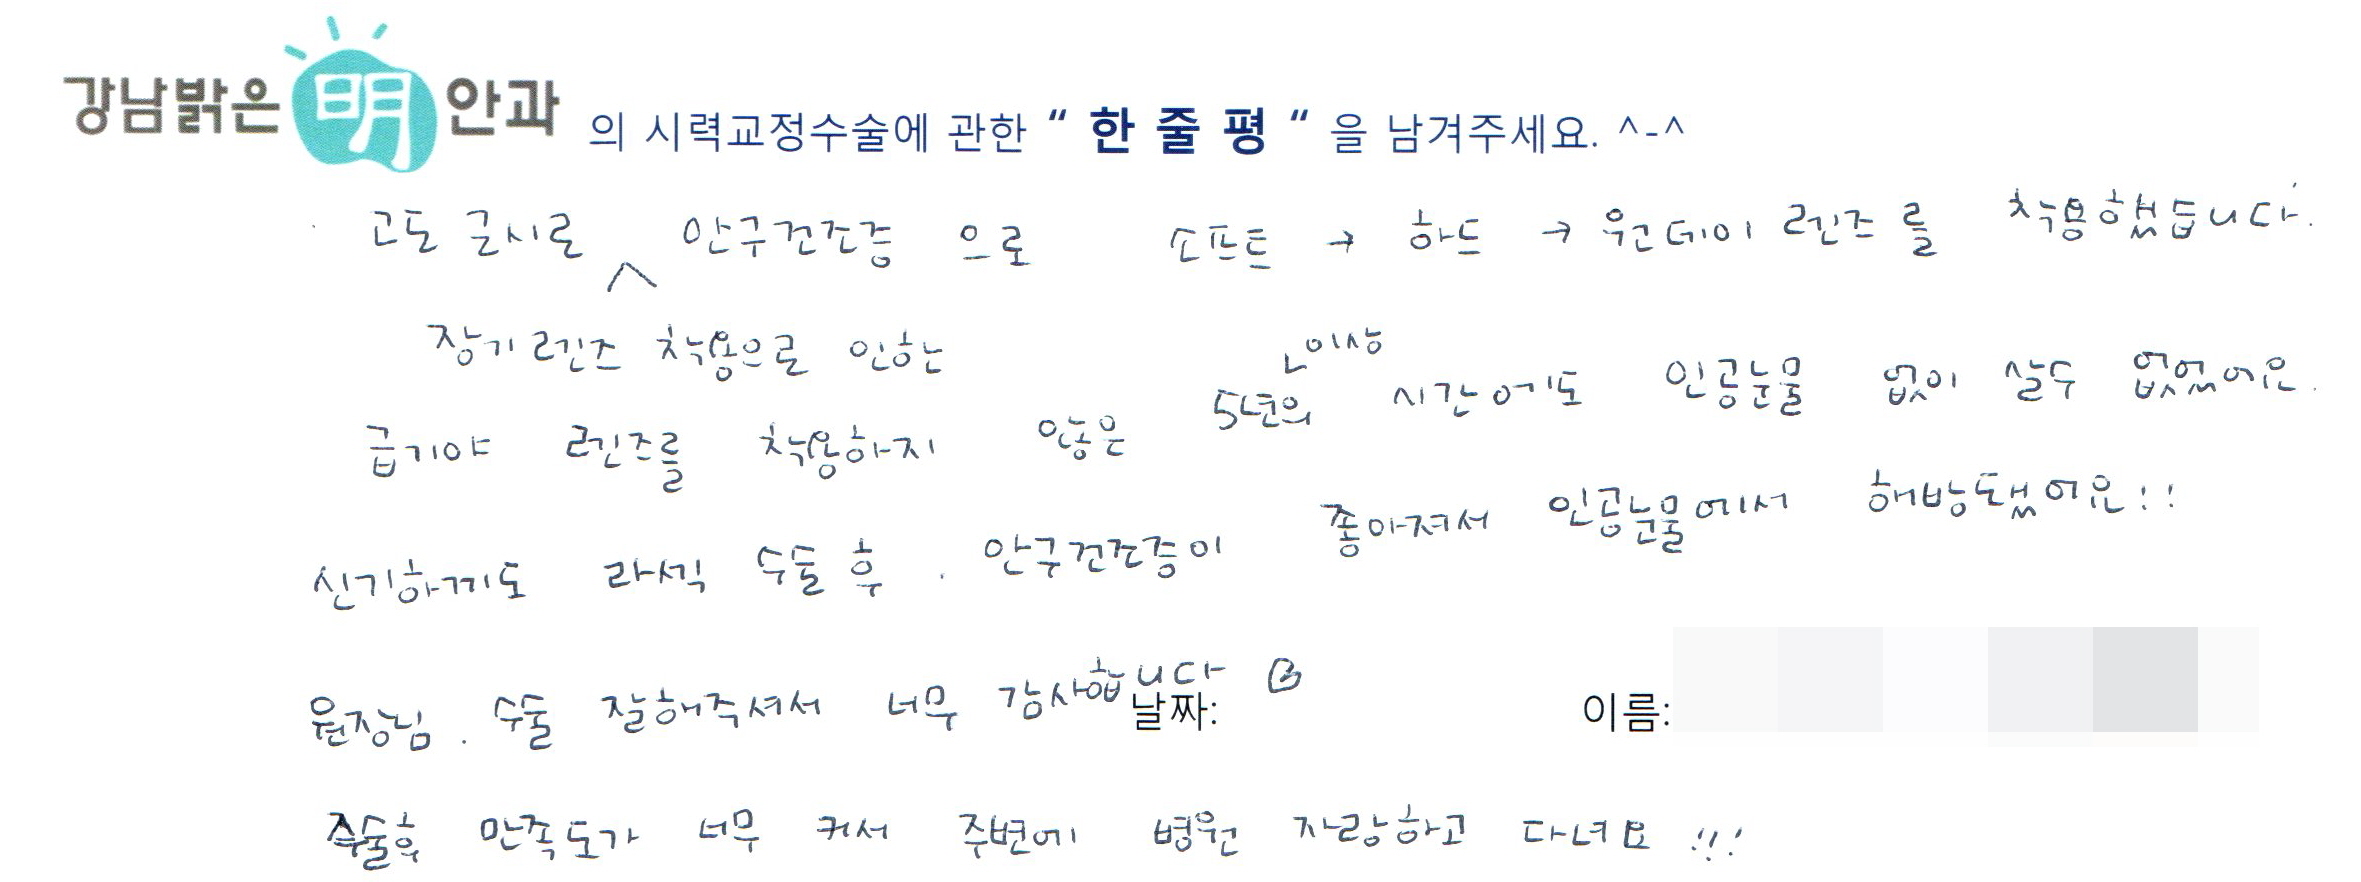 강남밝은 明 안과 의 시력교정수술에 관한 “ 한 줄 평 “ 을 남겨주세요. ^-^
고도 근시로 안구건조증 으로 소프트 → 하드 → 원데이 렌즈 를 착용했습니다.
장기 렌즈 착용으로 인한
이상
급기야 렌즈를 착용하지 않은 5년의 시간에도 인공눈물 없이 살수 없었어요.
신기하게도 라섹 수술 후. 안구건조증이 좋아져서 인공눈물에서 해방됐어요!!
원장님. 수술 잘해주셔서 너무 감사합니다
날짜: 이름:
수술후 만족도가 너무 커서 주변에 병원 자랑하고 다녀요!!!